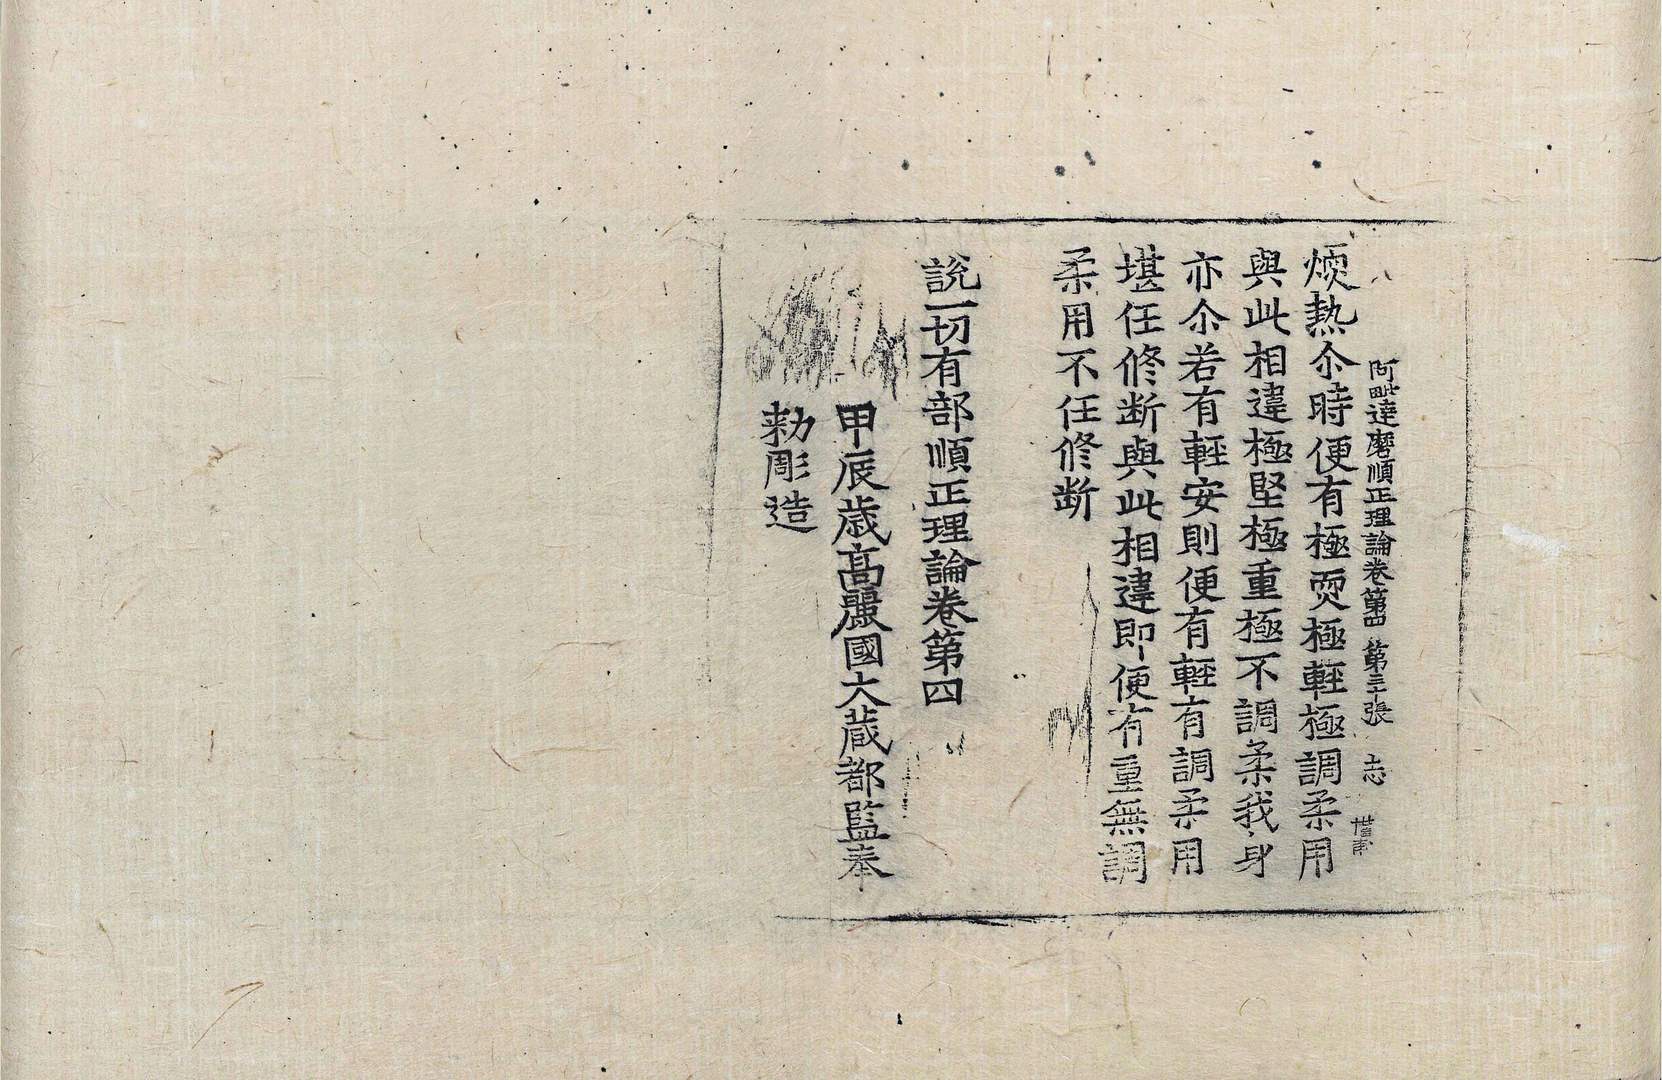 阿毗達磨順正理論卷第四 第三十張 志
煗熱尒時便有極耎極輕極調柔用
與此相違極堅極重極不調柔我身
亦尒若有輕安則便有輕有調柔用
堪任修断與此相違即便有重無調
柔用不任修断
說一切有部順正理論卷第四
甲辰歳髙麗國大藏都監奉
勑彫造